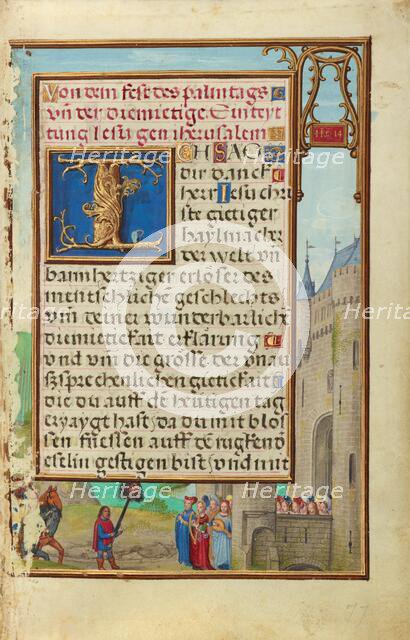 Von dem fest des palmtags
vn̄ der diemietige Einreyt
tung Iesu gen iherusalem
ICH SAG
dir danck
herr Iesu chri
ste gietiger
haylmacher
der welt vn̄
barmhertziger erloser des
menschliche geschlechts
vm deiner wunderbarliche
diemietikait erklärung
vnd vm die grosse der vnau
ßsprechenlichen gietikait
die du auff de heutigen tag
erzaygt hast / da du mit blos
sen fuessen auff de rugken d
eselin gestigen bist / vnd mit
77
Heritage